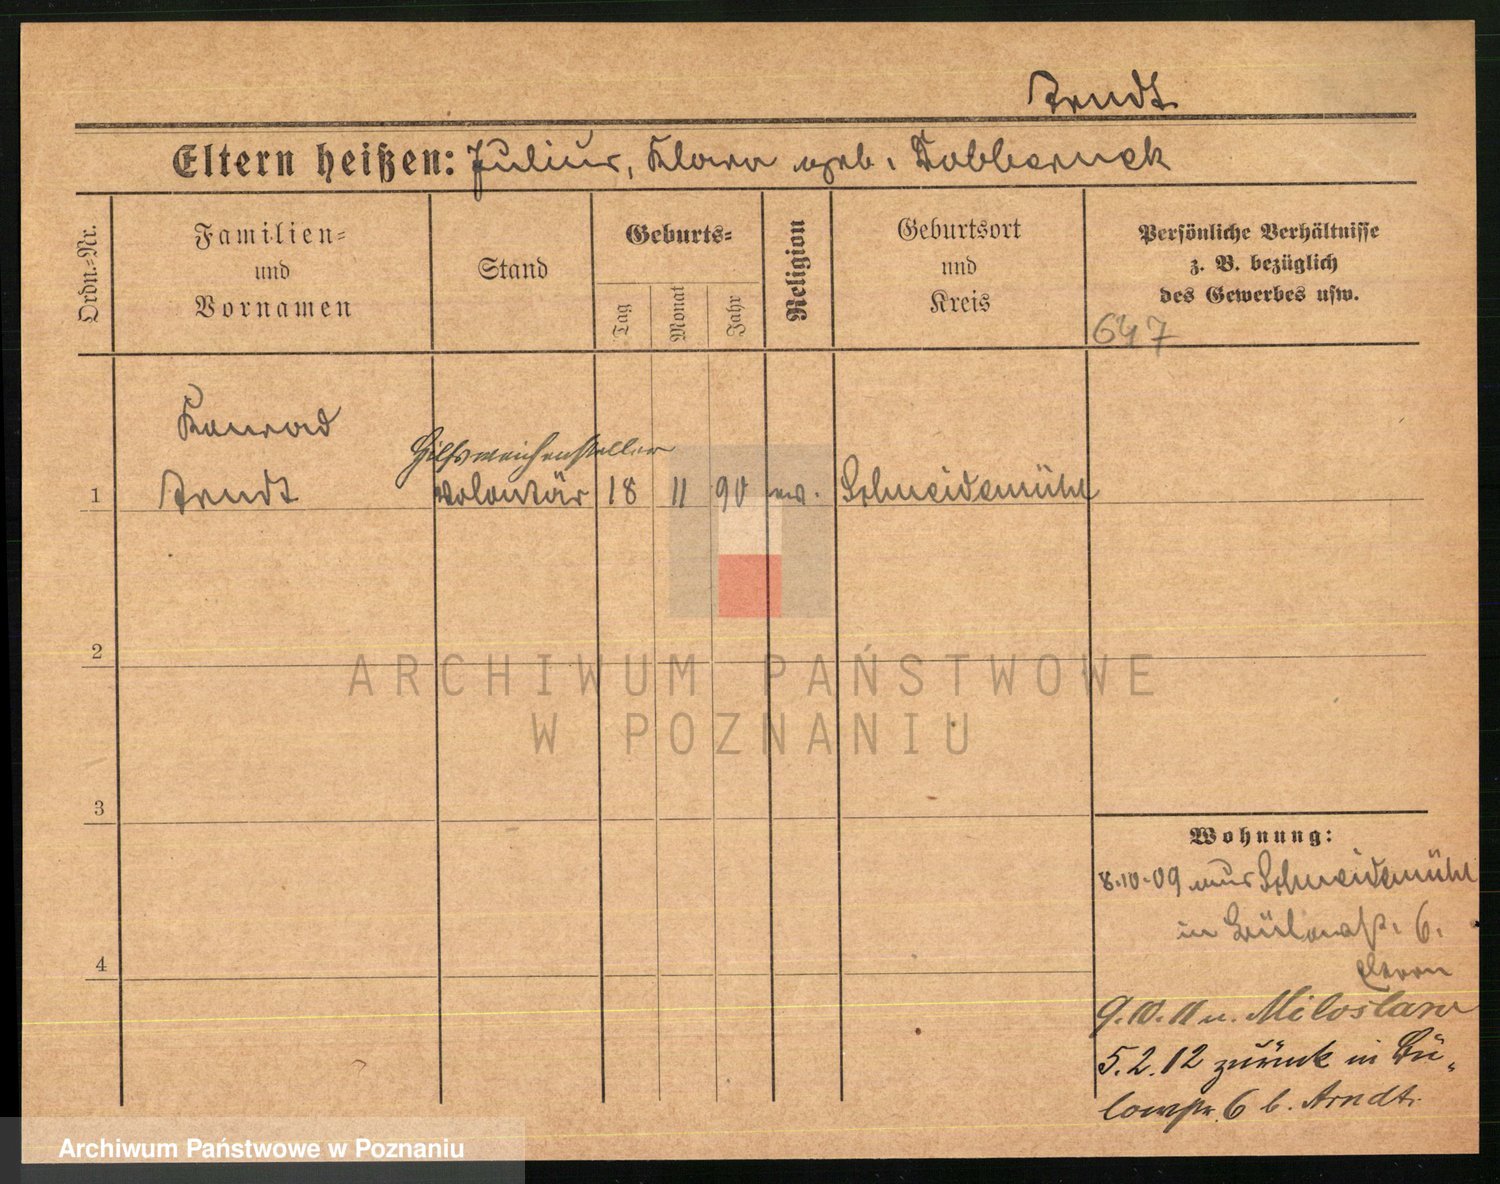 Arndt
Eltern heißen: Julius, Klara geb. Dobberneck
Ordn.-Nr.
Familien-
und
Vornamen
Stand
Geburts-
Tag
Monat
Jahr
Religion
Geburtsort
und
Kreis
Persönliche Verhältnisse
z. B. bezüglich
des Gewerbes usw.
647
Konrad
Hilfsweichensteller
1 Arndt Volontär 18 11 90 ev. Schneidemühl
2
3
4
Wohnung:
8.10.09 aus Schneidemühl
in Bülowstr. 6.
Eltern
9.10.11 n. Miloslaw
5.2.12 zurück in Bü-
lowstr. 6 b. Arndt.
ARCHIWUM PAŃSTWOWE
W POZNANIU
Archiwum Państwowe w Poznaniu